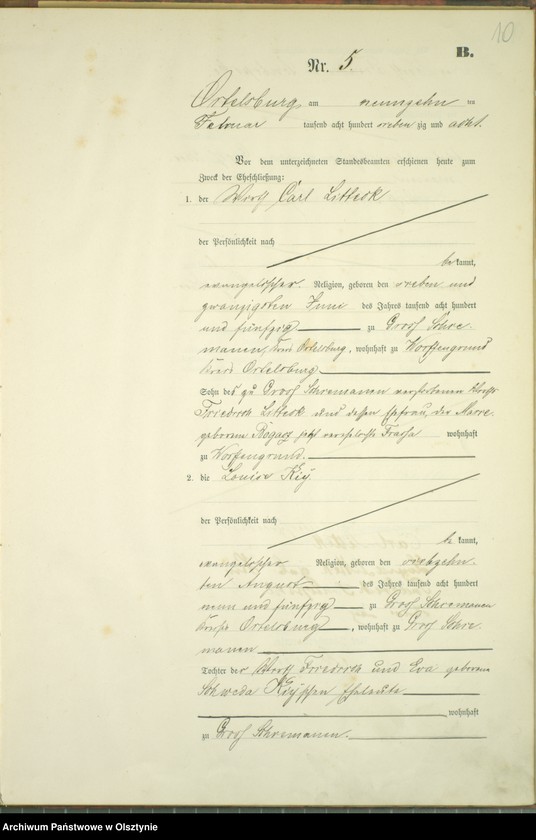 10
B.
Nr. 5.
Ortelsburg am neunzehn ten
Februar tausend acht hundert sieben zig und acht.
Vor dem unterzeichneten Standesbeamten erschienen heute zum
Zweck der Eheschließung:
1. der Wirth Carl Litteck
der Persönlichkeit nach
be kannt,
evangelischer Religion, geboren den sieben und
zwanzigsten Juni des Jahres tausend acht hundert
und fünfzig zu Groß Schie-
manen, Kreis Ortelsburg, wohnhaft zu
Kreis Ortelsburg
Sohn des zu Groß Schiemanen verstorbenen Wirths
Friedrich Litteck und dessen Ehefrau, der Marie
geborenen Rogacz jetzt verehelichte wohnhaft
zu
2. die Louise Kiy
der Persönlichkeit nach
be kannt,
evangelischer Religion, geboren den achtzehn-
ten August des Jahres tausend acht hundert
neun und fünfzig zu Groß Schiemanen
Kreis Ortelsburg, wohnhaft zu Groß Schie-
manen
Tochter der Wirth Friedrich und Eva geborene
Schweda Kiy'schen Eheleute
wohnhaft
zu Groß Schiemanen.
Archiwum Państwowe w Olsztynie